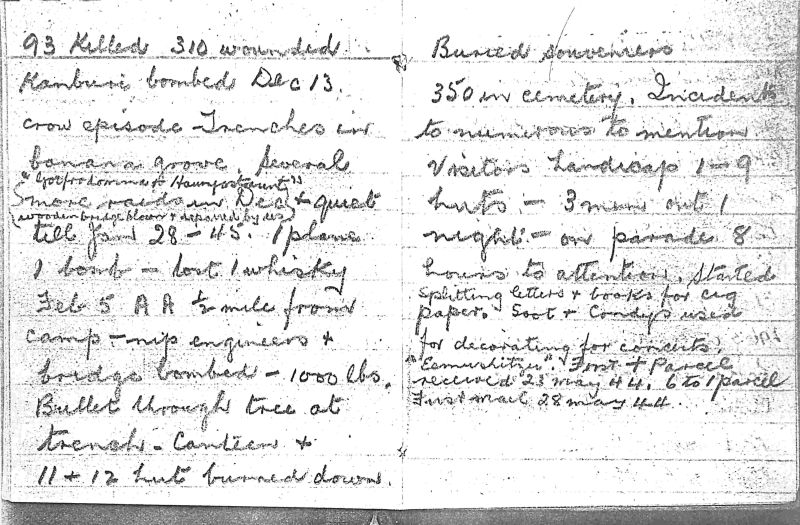 93 Killed 310 wounded.
Kanburi bombed Dec 13.
crow episode - Trenches in
banana grove. Several
more raids in Dec & quiet
wooden bridge blown & repaired by us
till Jan 28 - 45. 1 plane
1 bomb - lost 1 whisky
Feb 5 A A ½ mile from
camp - nip engineers &
bridge bombed - 1000 lbs.
Bullet through tree at
trench - Canteen &
11 + 12 hut burned down.
Buried souveniers
350 in cemetery. Incidents
to numerous to mention
Visitors handicap 1 - 9
huts. - 3 men out 1
night - on parade 8
hours to attention. Started
splitting letters & books for cig
paper. Soot & Condys used
for decorating for concerts.
First + Parcel
received 23 may 44. 6 to 1 parcel
First mail 28 may 44.